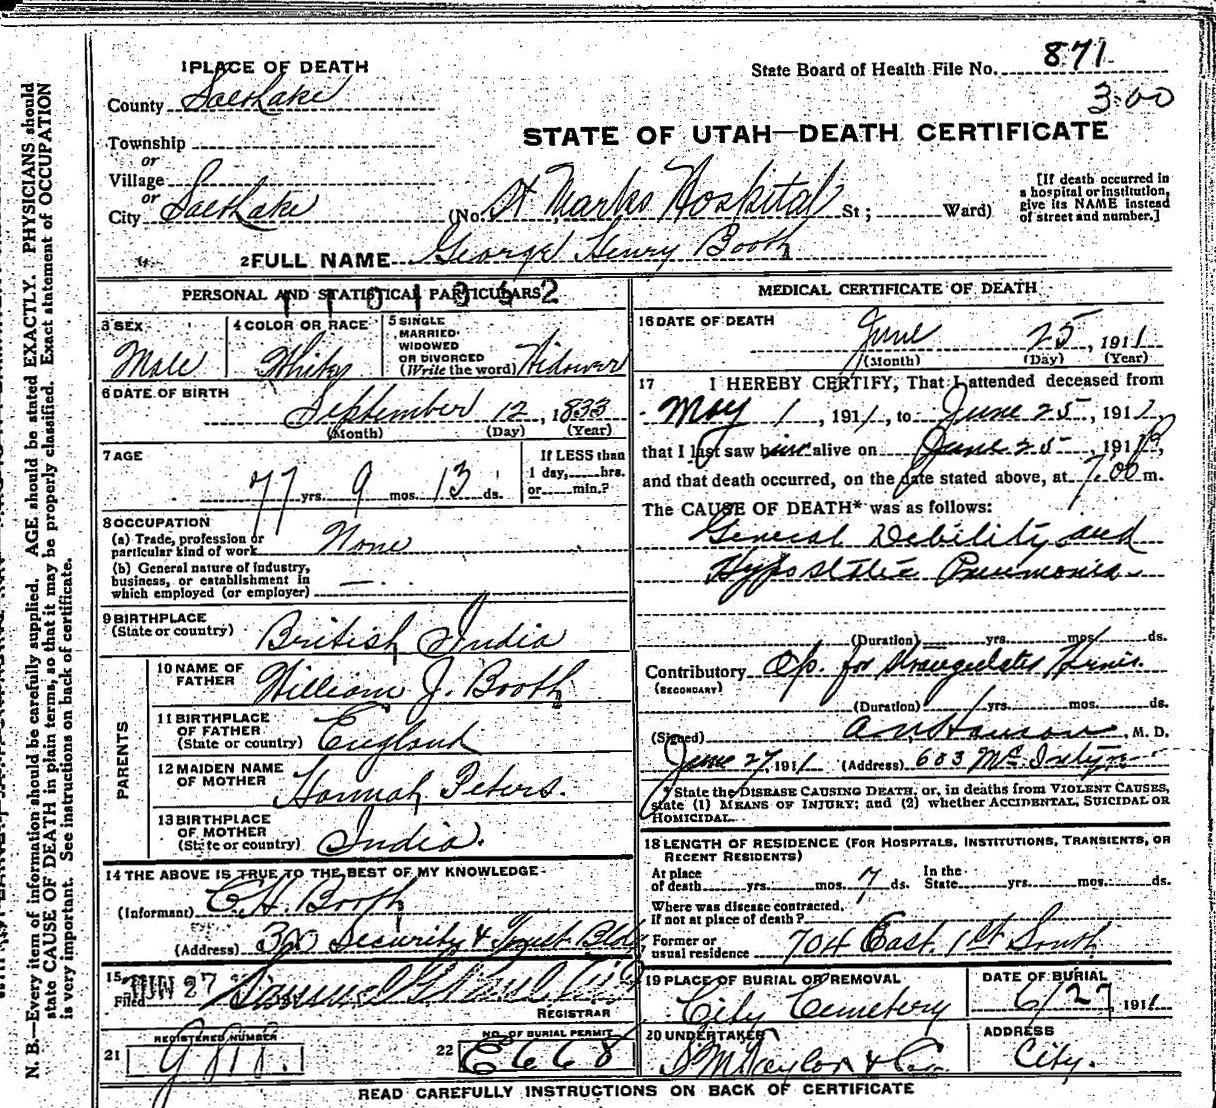 1 PLACE OF DEATH
State Board of Health File No. 871
County Salt Lake
3.00
Township
STATE OF UTAH—DEATH CERTIFICATE
or
Village
or
City Salt Lake (No. St Marks Hospital St; Ward)
[If death occurred in a hospital or institution, give its NAME instead of street and number.]
2 FULL NAME George Henry Booth
PERSONAL AND STATISTICAL PARTICULARS
3 SEX Male
4 COLOR OR RACE White
5 SINGLE MARRIED WIDOWED OR DIVORCED (Write the word) Widower
6 DATE OF BIRTH
September 12, 1833
(Month) (Day) (Year)
7 AGE
77 yrs. 9 mos. 13 ds.
If LESS than 1 day, hrs. or min.?
8 OCCUPATION
(a) Trade, profession or particular kind of work None
(b) General nature of industry, business, or establishment in which employed (or employer) —
9 BIRTHPLACE (State or country) British India
PARENTS
10 NAME OF FATHER William J. Booth
11 BIRTHPLACE OF FATHER (State or country) England
12 MAIDEN NAME OF MOTHER Hannah Peters.
13 BIRTHPLACE OF MOTHER (State or country) India.
14 THE ABOVE IS TRUE TO THE BEST OF MY KNOWLEDGE
(Informant) C. H. Booth
(Address) 300 Security & Trust Bldg
15 Filed JUN 27
REGISTRAR
21 REGISTERED NUMBER
22 NO. OF BURIAL PERMIT E668
MEDICAL CERTIFICATE OF DEATH
16 DATE OF DEATH
June 25, 1911
(Month) (Day) (Year)
17 I HEREBY CERTIFY, That I attended deceased from
May 1, 1911, to June 25, 1911,
that I last saw him alive on June 25, 1911,
and that death occurred, on the date stated above, at 7.00 m.
The CAUSE OF DEATH* was as follows:
General Debility and
Hypostatic Pneumonia
(Duration) yrs. mos. ds.
Contributory Op. for Strangulated Hernia.
(SECONDARY)
(Duration) yrs. mos. ds.
(Signed) M. D.
June 27, 1911 (Address) 603 McIntyre
* State the DISEASE CAUSING DEATH, or, in deaths from VIOLENT CAUSES,
state (1) MEANS OF INJURY; and (2) whether ACCIDENTAL, SUICIDAL OR
HOMICIDAL.
18 LENGTH OF RESIDENCE (FOR HOSPITALS, INSTITUTIONS, TRANSIENTS, OR
RECENT RESIDENTS)
At place of death yrs. mos. 7 ds. In the State yrs. mos. ds.
Where was disease contracted,
If not at place of death?
Former or usual residence 704 East 1st South
19 PLACE OF BURIAL OR REMOVAL City Cemetery
DATE OF BURIAL 6/27 1911
20 UNDERTAKER S M Taylor & Co.
ADDRESS City.
READ CAREFULLY INSTRUCTIONS ON BACK OF CERTIFICATE
N. B.—Every item of information should be carefully supplied. AGE should be stated EXACTLY. PHYSICIANS should
state CAUSE OF DEATH in plain terms, so that it may be properly classified. Exact statement of OCCUPATION
is very important. See instructions on back of certificate.